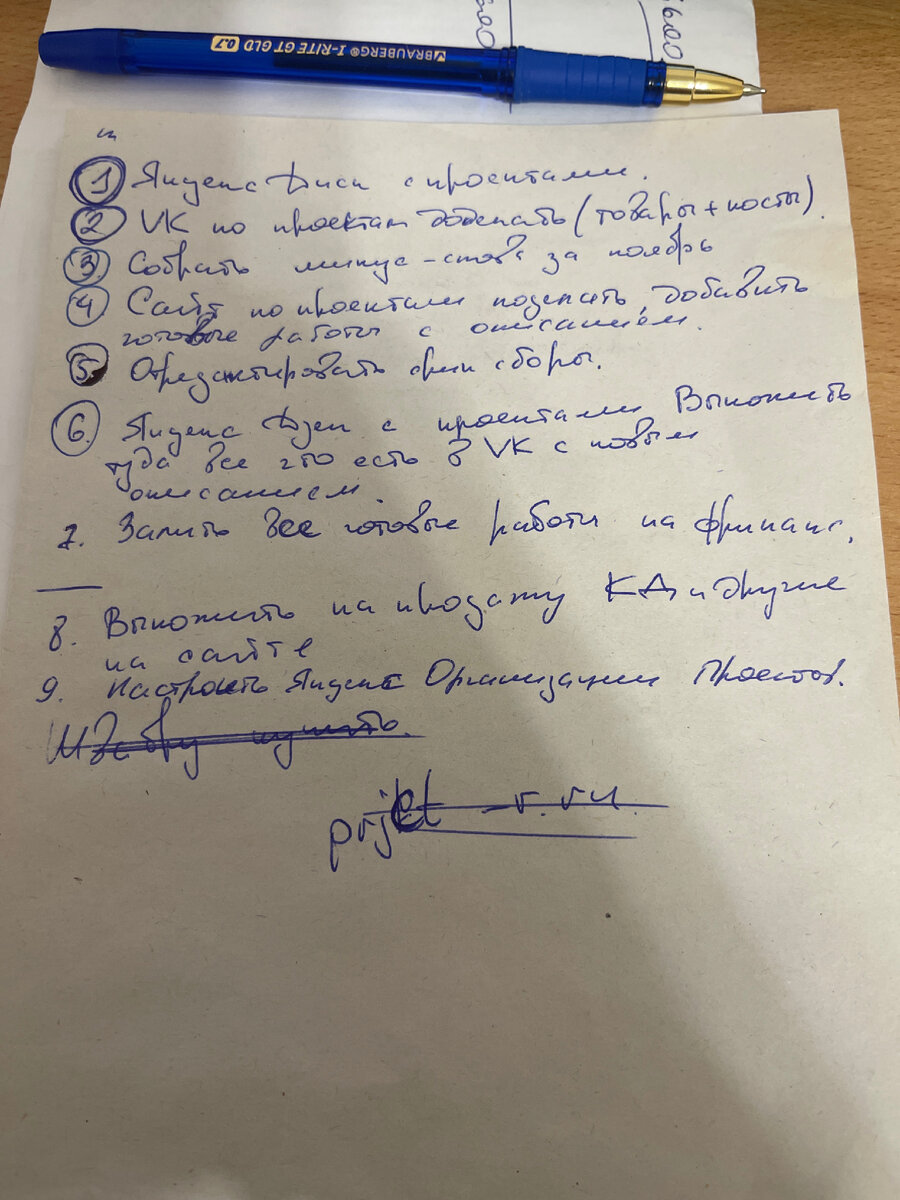 600
6600
BRAUBERG® I-RITE GT GLD 0.7
1 Яндекс Диск с проектами.
2 VK по проектам доделать (товары + посты).
3 Собрать минус-слова за ноябрь
4 Сайт по проектам поделать, добавить
готовые работы с описанием.
5 Отредактировать сборы.
6. Яндекс Дзен с проектами Выложить
туда все что есть в VK с новым
описанием.
7. Залить все готовые работы на фриланс.
8. Выложить на продажу КД и другие
на сайте
9. Настроить Яндекс Организации Проектов.
prjct -v.ru